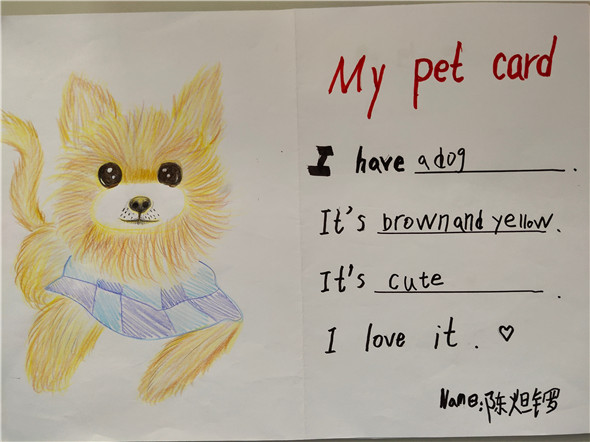 My pet card
I have a dog.
It's brown and yellow.
It's cute.
I love it. ♡
Name:陈烜锣